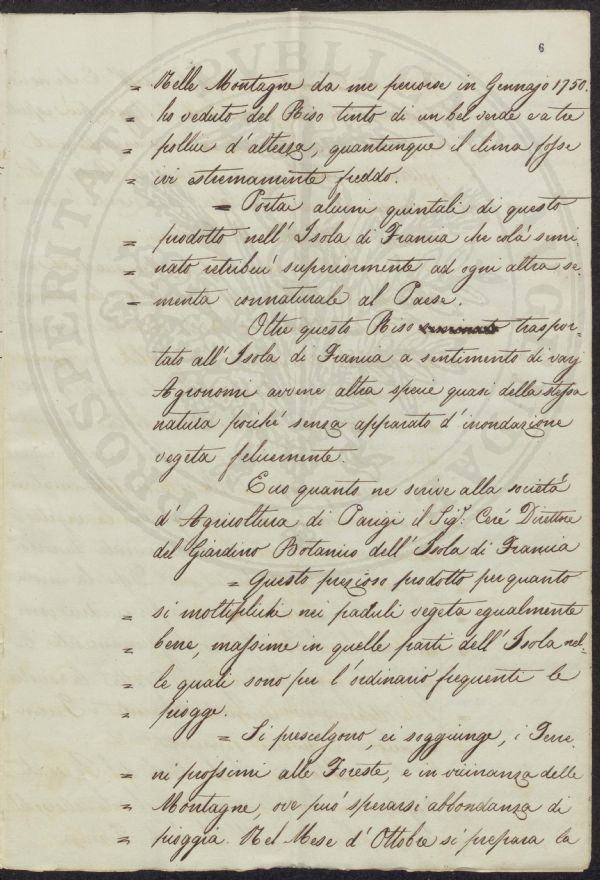 6
= Nelle Montagne da me percorse in Gennajo 1750.
= ho veduto del Riso tinto di un bel verde e a tre
= pollici d'altezza, quantunque il clima fosse
= ivi estremamente freddo.
= Portai alcuni quintali di questo
= prodotto nell'Isola di Francia che colà semi
= nato retribuì superiormente ad ogni altra se=
= menta connaturale al Paese.
Oltre questo Riso traspor-
tato all'Isola di Francia a sentimento di varj
Agronomi avvene altra specie quasi della stessa
natura poiché senza apparato d'inondazione
vegeta felicemente.
Ecco quanto ne scrive alla società
d'Agricoltura di Parigi il Sigr. Ceré Direttore
del Giardino Botanico dell'Isola di Francia
= Questo prezioso prodotto per quanto
= si moltiplichi nei paduli vegeta egualmente
= bene, massime in quelle parti dell'Isola nel=
= le quali sono per l'ordinario frequenti le
= piogge.
= Si prescelgono, ei soggiunge, i Terre
= ni prossimi alle Foreste, e in vicinanza delle
= Montagne, ove può sperarsi abbondanza di
= pioggia. Nel Mese d'Ottobre si prepara la